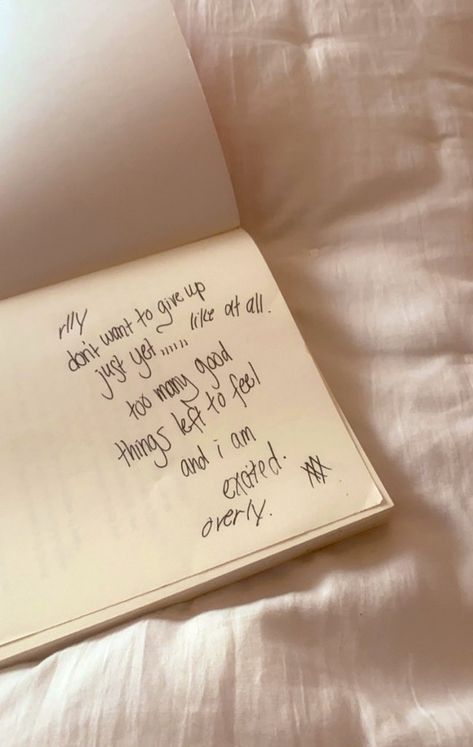 rlly
don't want to give up
just yet,,,,,, like at all.
too many good
things left to feel
and i am
excited.
overly.